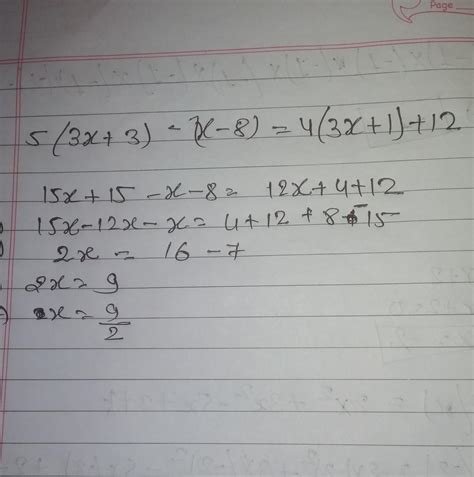 Page
5(3x+3) - (x-8) = 4(3x+1)+12
15x+15-x-8= 12x+4+12
15x-12x-x= 4+12+8-15
2x = 16-7
2x= 9
x= 9/2